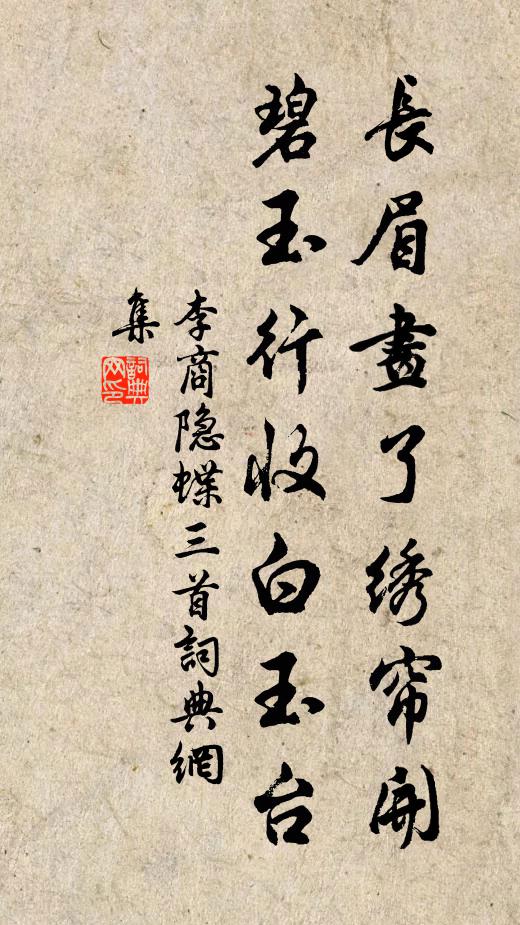 長眉畫了绣帘開
碧玉行收白玉台
李商隐蝶三首詞典網
集
詞典
网印